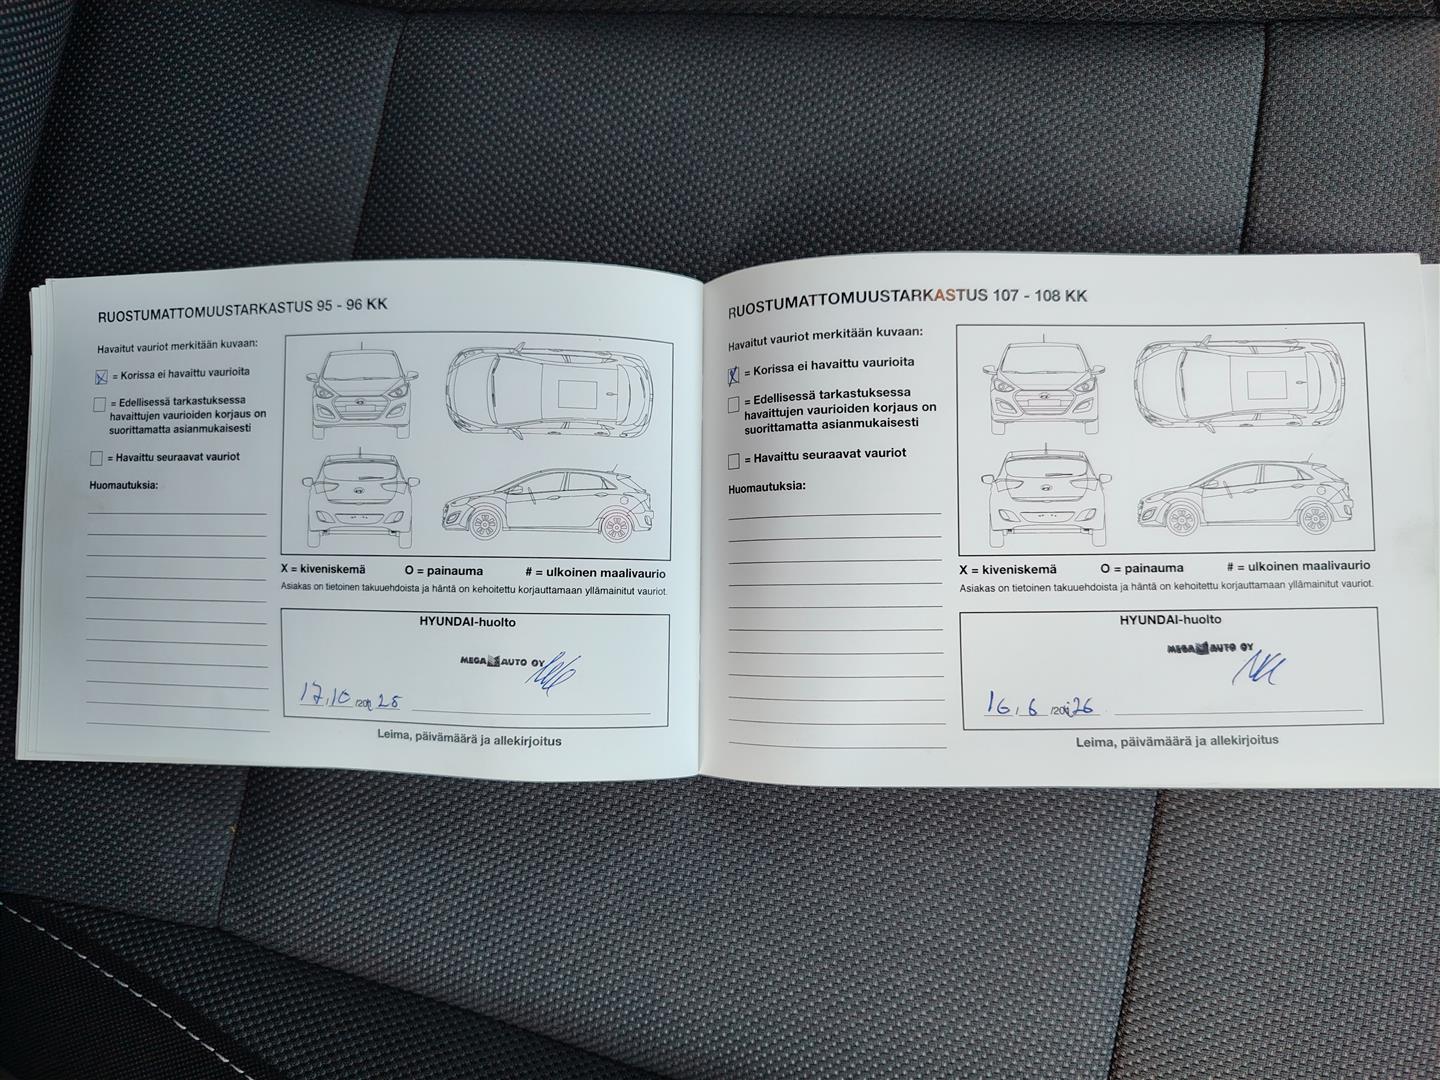 RUOSTUMATTOMUUSTARKASTUS 95 - 96 KK
Havaitut vauriot merkitään kuvaan:
= Korissa ei havaittu vaurioita
= Edellisessä tarkastuksessa
havaittujen vaurioiden korjaus on
suorittamatta asianmukaisesti
= Havaittu seuraavat vauriot
Huomautuksia:
X = kiveniskemä O = painauma # = ulkoinen maalivaurio
Asiakas on tietoinen takuuehdoista ja häntä on kehoitettu korjauttamaan yllämainitut vauriot.
HYUNDAI-huolto
MEGA AUTO OY
17.10 /20 25
Leima, päivämäärä ja allekirjoitus
RUOSTUMATTOMUUSTARKASTUS 107 - 108 KK
Havaitut vauriot merkitään kuvaan:
= Korissa ei havaittu vaurioita
= Edellisessä tarkastuksessa
havaittujen vaurioiden korjaus on
suorittamatta asianmukaisesti
= Havaittu seuraavat vauriot
Huomautuksia:
X = kiveniskemä O = painauma # = ulkoinen maalivaurio
Asiakas on tietoinen takuuehdoista ja häntä on kehoitettu korjauttamaan yllämainitut vauriot.
HYUNDAI-huolto
MEGA AUTO OY
16. 6 /20 26
Leima, päivämäärä ja allekirjoitus